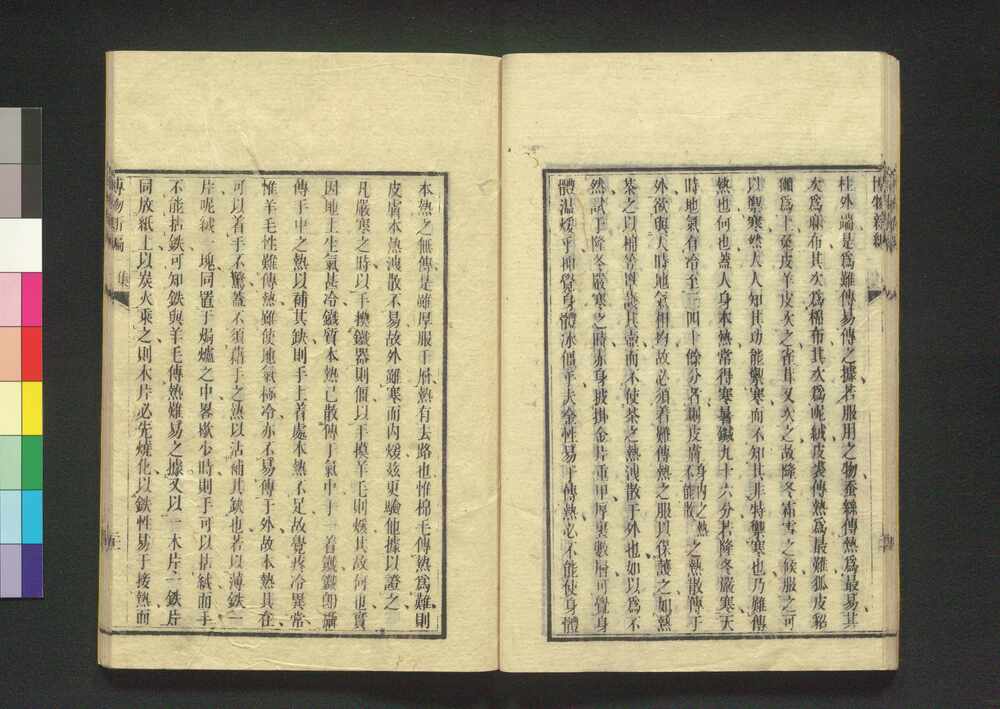 柱外端是爲難傳易傳之據若服用之物蚕絲傳熱爲最易其
次爲麻布其次爲棉布其次爲呢絨皮裘傳熱爲最難狐皮貂
獺爲上兔皮羊皮次之雀茸又次之故降冬霜雪之候服之可
以禦寒然人人知其功能禦寒而不知其非特禦寒也乃難傳
熱也何也蓋人身本熱常得寒暑鍼九十六分若降冬嚴寒天
時地氣有冷至三四十餘分者則皮膚不能散身內之熱之熱散傳于
外欲與天時地氣相均故必須着難傳熱之服以保護之如熱
茶之以棉等裹其壺而不使茶之熱洩散于外也如以爲不
然試于降冬嚴寒之時赤身披掛金片重甲厚裹數層可覺身
體温煖乎抑覺身體冰僵乎夫金性易于傳熱必不能使身體
本熱之無傳是雖厚服千層熱有去路也惟棉毛傳熱爲難則
皮膚本熱洩散不易故外雖寒而內煖茲更驗他據以證之
凡嚴寒之時以手摸鐵器則僵以手摸羊毛則煖其故何也實
因地上生氣甚冷鐵質本熱已散傳于氣中手一着鐵鐵卽攝
傳手中之熱以補其缺則手上着處本熱不足故覺疼冷異常
惟羊毛性難傳熱雖使地氣極冷亦不易傳于外故本熱具在
可以着手不驚蓋不須藉手之熱以沾補其缺也若以薄鉄一
片呢絨一塊同置于焗爐之中畧歇少時則手可以拈絨而手
不能拈鉄可知鉄與羊毛傳熱難易之據又以一木片一鉄片
同放紙上以炭火乘之則木片必先燒化以鉄性易于接熱而
博物新編
集